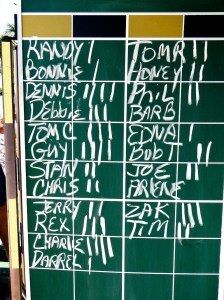 RANDY |
BONNIE |
DENNIS ||||
Debbie |||
TOM C |||
GUY ||||
STAN ||
CHRIS ||
JERRY ||
REX |||
CHARLIE ||||
DARREL |
TOM R ||
HONEY |||
PHIL ||
BARB
EDNA |
BOB ||
JOE |||
ARLENE
ZAK |||
TIM ||